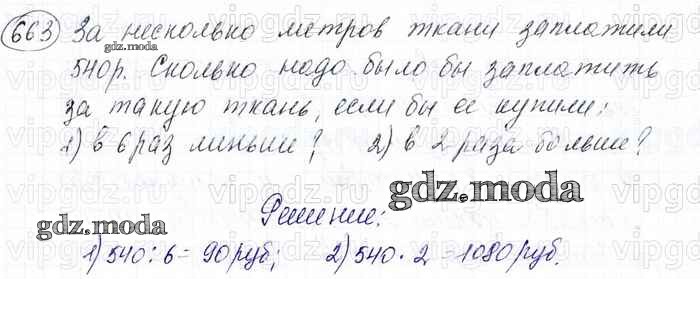 663 За несколько метров ткани заплатили
540р. Сколько надо было бы заплатить
за такую ткань, если бы ее купили:
1) в 6 раз меньше? 2) в 2 раза больше?
Решение:
1) 540 : 6 = 90 руб; 2) 540 · 2 = 1080 руб.
gdz.moda
gdz.moda
gdz.moda
vipgdz.ru